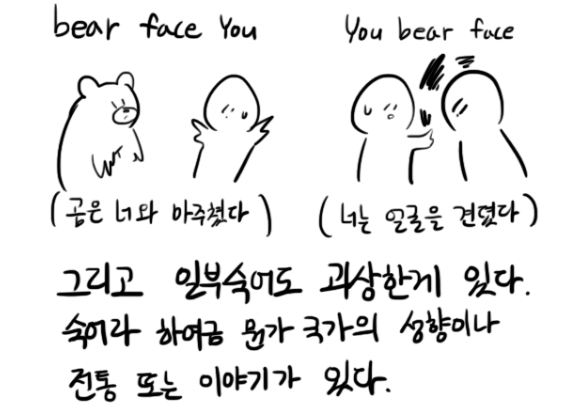 bear face You
You bear face
(곰은 너와 아주쳤다)
(너는 얼굴을 견뎠다)
그리고 일부숙어도 괴상한게 있다.
숙어라 하여금 뭔가 국가의 성향이나
전통 또는 이야기가 있다.